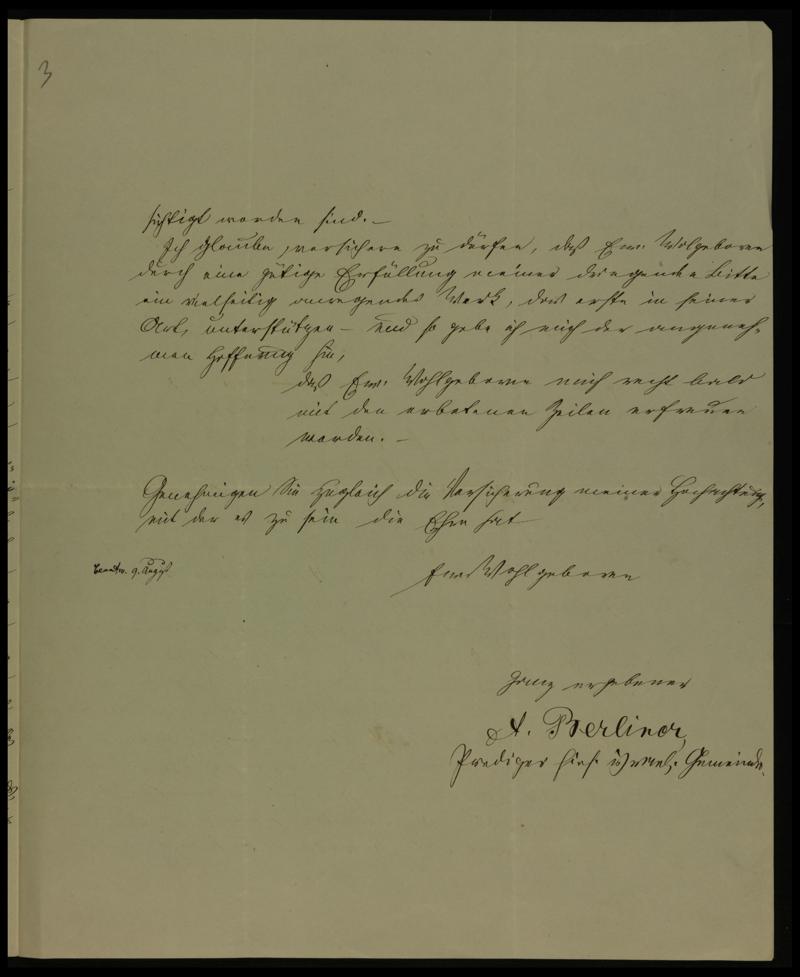 3
sichtigt worden sind. –
Ich glaube, versichern zu dürfen, daß Ew. Wolgeboren
durch eine gütige Erfüllung meiner dringenden Bitte
ein vielseitig anregendes Werk, das erste in seiner
Art, unterstützen – und so gebe ich mich der angeneh-
men Hoffnung hin,
daß Ew. Wohlgeboren mich recht bald
mit den erbetenen Zeilen erfreuen
werden. –
Genehmigen Sie zugleich die Versicherung meiner Hochachtung,
mit der es zu sein die Ehre hat
Ew. Wohlgeboren
9. August
Ganz ergebener
A. Berliner,
Prediger hies. israel. Gemeinde.